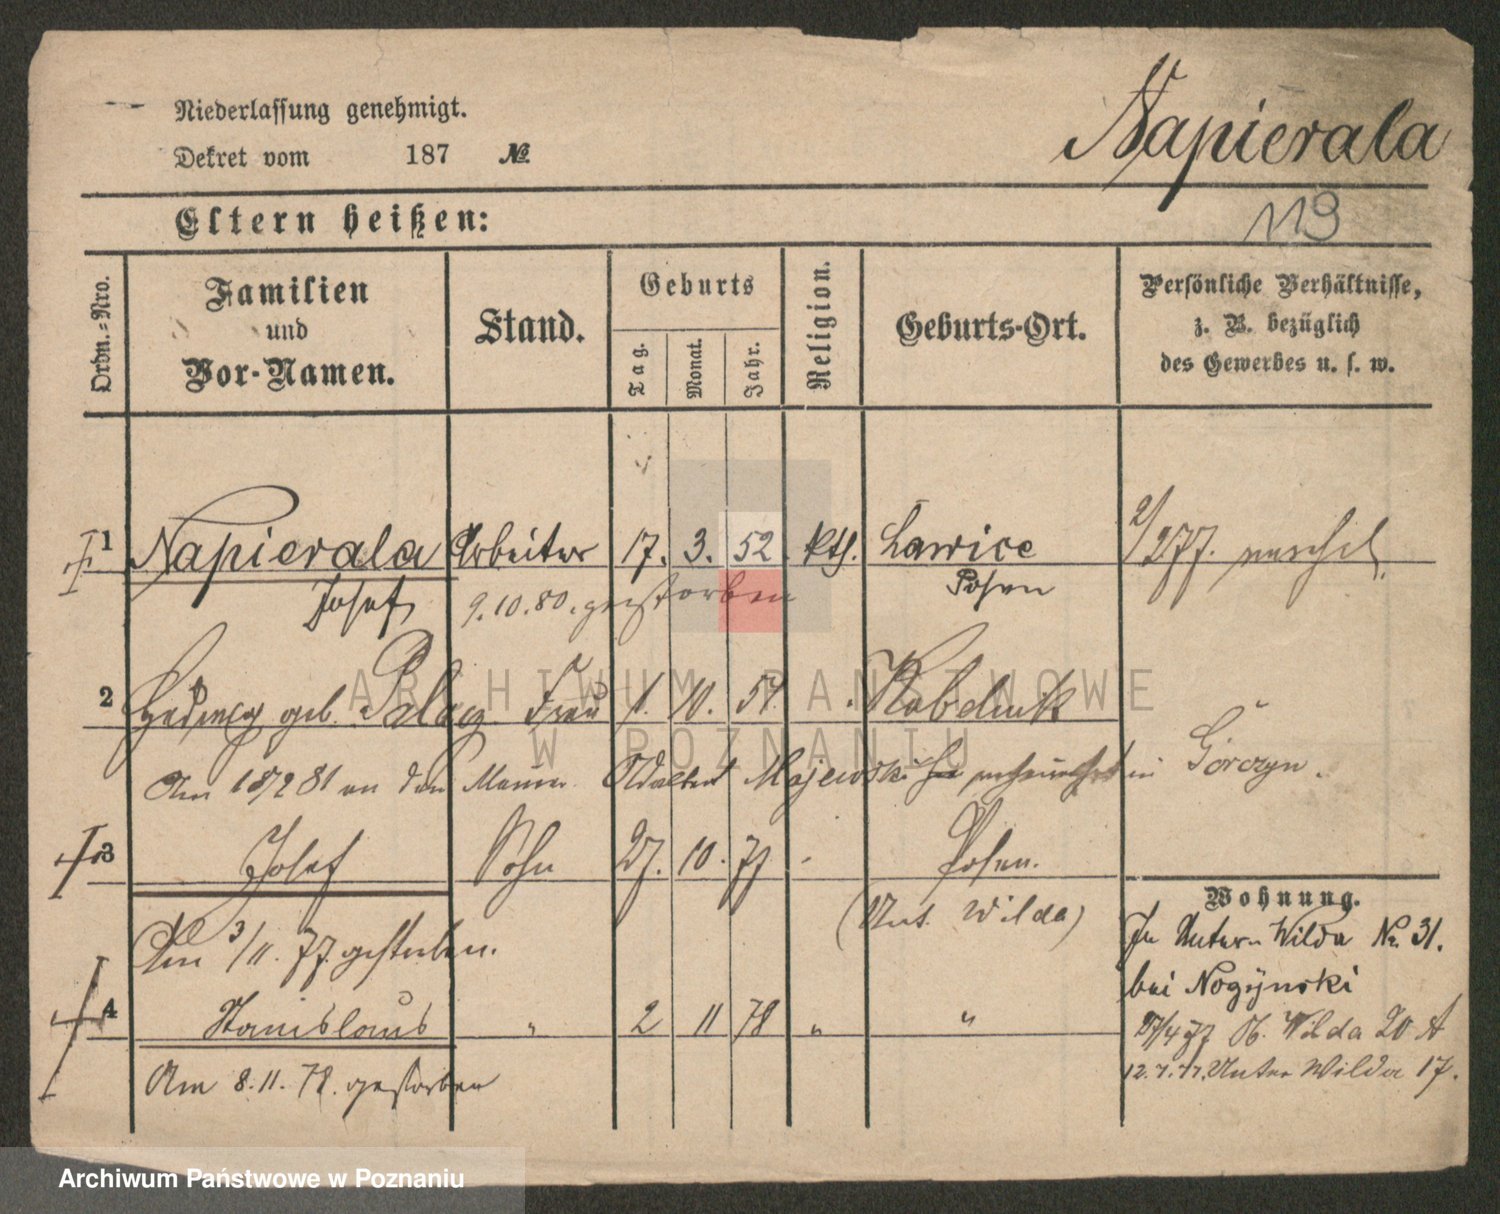 Niederlassung genehmigt.
Dekret vom 187 №
Napierala
119
Eltern heißen:
Ordn.=Nro.
Familien
und
Vor-Namen.
Stand.
Geburts
Tag.
Monat.
Jahr.
Religion.
Geburts-Ort.
Persönliche Verhältnisse,
z. B. bezüglich
des Gewerbes u. s. w.
1 Napierala Arbeiter 17. 3. 52. kth. Lawice 2/277.
Josef, 9.10.80. gestorben Posen
2 Hedwig geb. Palacz Frau 1. 10. 54. Kobelnik
Am 18/2 81 an den Mann Adalbert Majewski verheirathet in Górczyn.
3 Josef Sohn 27. 10. 77 Posen.
(Unt. Wilda)
Am 3/11. 77. gestorben.
4 Stanislaus " 2 11 78 " "
Am 8.11.78. gestorben
Wohnung.
In Unter-Wilda Nr. 31.
bei Nogynski
27/4 77 Ob. Wilda 20 A
12.7.77. Unter Wilda 17.
ARCHIWUM PAŃSTWOWE
W POZNANIU
Archiwum Państwowe w Poznaniu